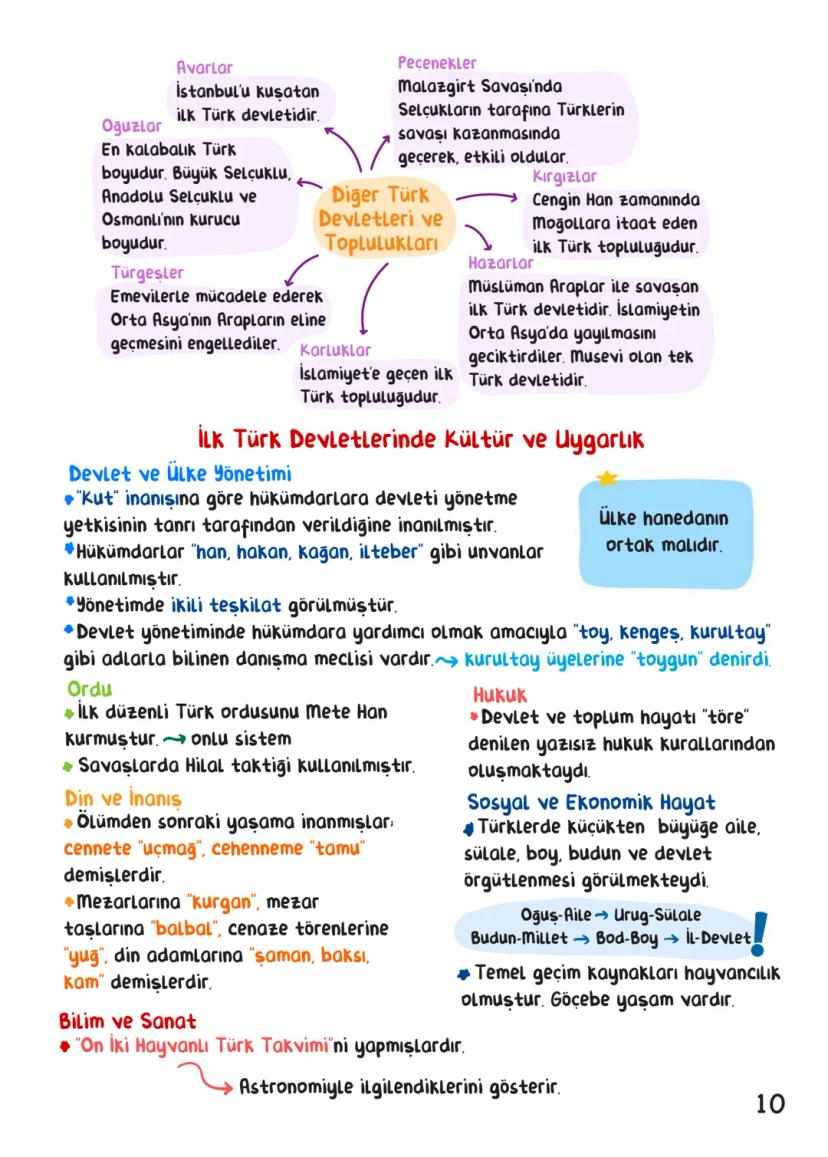 Avarlar
İstanbul'u kuşatan
ilk Türk devletidir.
Peçenekler
Malazgirt Savaşı'nda
Selçukların tarafına Türklerin
savaşı kazanmasında
geçerek, etkili oldular.
Oğuzlar
En kalabalık Türk
boyudur. Büyük Selçuklu,
Anadolu Selçuklu ve
Osmanlı'nın kurucu
boyudur.
Diğer Türk
Devletleri ve
Toplulukları
Kırgızlar
Cengin Han zamanında
Moğollara itaat eden
ilk Türk topluluğudur.
Türgeşler
Emevilerle mücadele ederek
Orta Asya'nın Arapların eline
geçmesini engellediler.
Hazarlar
Müslüman Araplar ile savaşan
ilk Türk devletidir. İslamiyetin
Orta Asya'da yayılmasını
geciktirdiler. Musevi olan tek
Türk devletidir.
Karluklar
İslamiyet'e geçen ilk
Türk topluluğudur.
İlk Türk Devletlerinde Kültür ve Uygarlık
Devlet ve Ülke Yönetimi
"Kut" inanışına göre hükümdarlara devleti yönetme
yetkisinin tanrı tarafından verildiğine inanılmıştır.
Hükümdarlar "han, hakan, kağan, ilteber" gibi unvanlar
kullanılmıştır.
Yönetimde ikili teşkilat görülmüştür.
Devlet yönetiminde hükümdara yardımcı olmak amacıyla "toy, kengeş, kurultay"
gibi adlarla bilinen danışma meclisi vardır.→ kurultay üyelerine "toygun" denirdi.
Ülke hanedanın
ortak malıdır.
Ordu
İlk düzenli Türk ordusunu Mete Han
kurmuştur. → onlu sistem
Savaşlarda Hilal taktiği kullanılmıştır.
Hukuk
Devlet ve toplum hayatı "töre"
denilen yazısız hukuk kurallarından
oluşmaktaydı.
Din ve İnanış
Ölümden sonraki yaşama inanmışlar;
cennete "uçmağ", cehenneme "tamu"
demişlerdir.
Mezarlarına "kurgan", mezar
taşlarına "balbal", cenaze törenlerine
"yuğ", din adamlarına "şaman, baksı,
kam" demişlerdir.
Sosyal ve Ekonomik Hayat
Türklerde küçükten büyüğe aile,
sülale, boy, budun ve devlet
örgütlenmesi görülmekteydi.
Oğuş-Aile → Urug-Sülale
Budun-Millet → Bod-Boy → İl-Devlet!
Temel geçim kaynakları hayvancılık
olmuştur. Göçebe yaşam vardır.
Bilim ve Sanat
"On İki Hayvanlı Türk Takvimi"ni yapmışlardır.
Astronomiyle ilgilendiklerini gösterir.
10